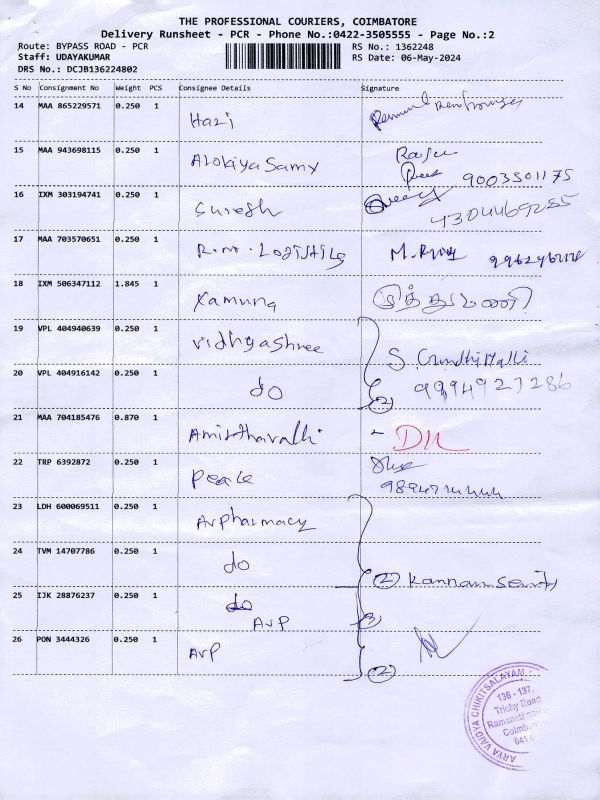 THE PROFESSIONAL COURIERS, COIMBATORE
Delivery Runsheet - PCR - Phone No.:0422-3505555 - Page No.:2
Route: BYPASS ROAD - PCR RS No.: 1362248
Staff: UDAYAKUMAR RS Date: 06-May-2024
DRS No.: DCJB136224802
S No Consignment No Weight PCS Consignee Details Signature
14 MAA 865229571 0.250 1 Hari
15 MAA 943698115 0.250 1 AlokiyaSamy Raju
9003501175
16 IXM 303194741 0.250 1 Suresh
17 MAA 703570651 0.250 1 R.m. Logistics M.
18 IXM 506347112 1.845 1 Yamuna முத்துமணி
19 VPL 404940639 0.250 1 Vidhyashree
20 VPL 404916142 0.250 1 do 2 9994927286
21 MAA 704185476 0.870 1 Amirthavalli - DM
22 TRP 6392872 0.250 1 Pearle
23 LDH 600069511 0.250 1 Avpharmacy
24 TVM 14707786 0.250 1 do 2 Kannan
25 IJK 28876237 0.250 1 do
AVP
26 PON 3444326 0.250 1 AVP 2
ARYA VAIDYA CHIKITSALAYAM
136 - 137,
Trichy Road